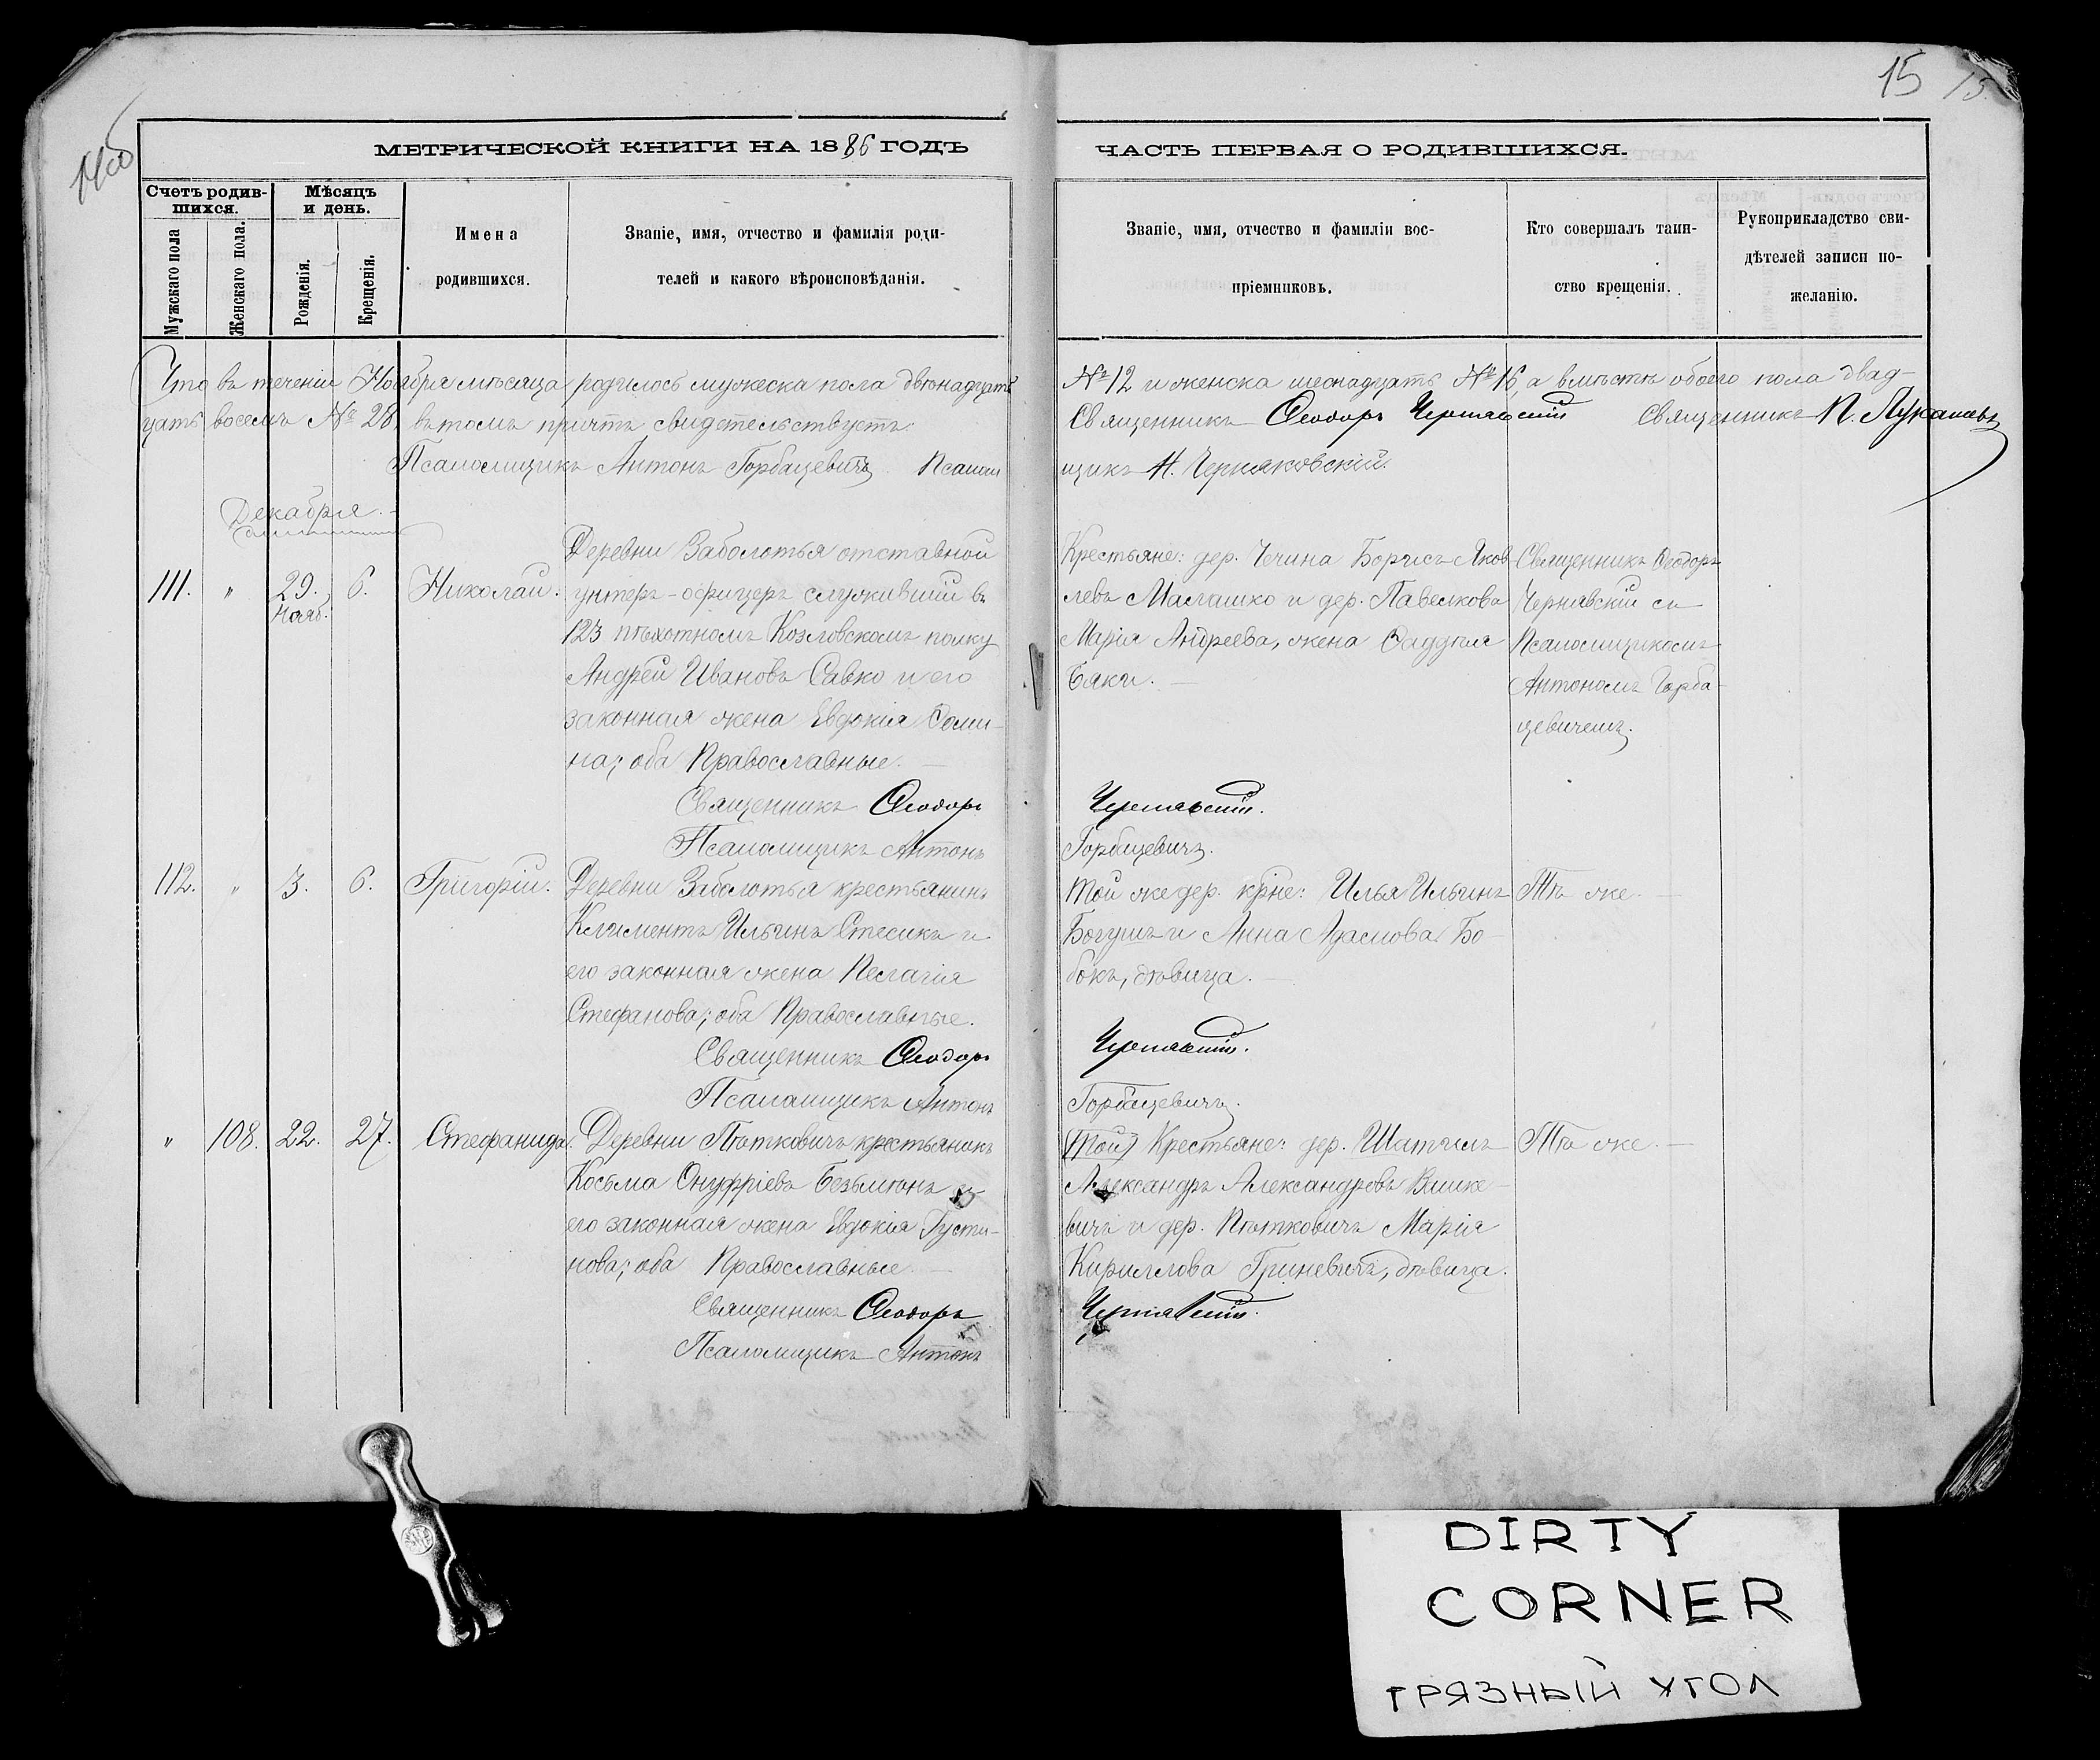 15 15.
МЕТРИЧЕСКОЙ КНИГИ НА 1886 ГОДЪ
ЧАСТЬ ПЕРВАЯ О РОДИВШИХСЯ.
Счетъ родив-
шихся.
Мужскаго пола
Женскаго пола.
Мѣсяцъ
и день.
Рожденія.
Крещенія.
Имена
родившихся.
Званіе, имя, отчество и фамилія роди-
телей и какого вѣроисповѣданія.
Званіе, имя, отчество и фамиліи вос-
пріемниковъ.
Кто совершалъ таин-
ство крещенія.
Рукоприкладство сви-
дѣтелей записи по-
желанію.
Что въ теченіи Ноября мѣсяца родилось мужеска пола двѣнадцать
№ 12 и женска шеснадцать № 16, а вмѣстѣ обоего пола двад-
цать восемь № 28 въ томъ причтъ свидетельствуетъ:
Священникъ Ѳеодоръ Чернявскій Священникъ П. Лукашевъ
Псаломщикъ Антонъ Горбацевичъ Псалом
щикъ Н. Черняковскій.
Декабря.
111. " 29. Нояб. 6. Николай.
Деревни Заболотья отставной
унтеръ-офицеръ служившій въ
123 пѣхотномъ Козловскомъ полку
Андрей Ивановъ Савко и его
законная жена Евдокія Ѳоми-
на; оба Православные.
Священникъ Ѳеодоръ
Псаломщикъ Антонъ
Крестьяне: дер. Чечина Борисъ Яков
левъ Малашко и дер. Павелкова
Марія Андреева, жена Ѳаддея
Бяки.
Чернявскій.
Горбацевичъ.
Священникъ Ѳеодоръ
Чернявскій съ
Псаломщикомъ
Антономъ Горба-
цевичемъ.
112. " 3. 6. Григорій.
Деревни Заболотья крестьянинъ
Климентъ Ильинъ Стесикъ и
его законная жена Пелагія
Стефанова; оба Православные.
Священникъ Ѳеодоръ
Псаломщикъ Антонъ
Той же дер. крне: Илья Ильинъ
Богушъ и Анна Адамова Бо-
бокъ, дѣвица.
Чернявскій.
Горбацевичъ.
Тѣ же.
" 108. 22. 27. Стефанида.
Деревни Пѣтковичъ крестьянинъ
Косьма Онуфріевъ Безьмѣнъ и
его законная жена Евдокія Густи-
нова; оба Православные.
Священникъ Ѳеодоръ
Псаломщикъ Антонъ
(Той) Крестьяне: дер. Шатилъ
Александръ Александровъ Вашке-
вичъ и дер. Пѣтковичъ Марія
Кириллова Гриневичъ, дѣвица.
Чернявскій.
Тѣ же.
DIRTY
CORNER
ГРЯЗНЫЙ УГОЛ